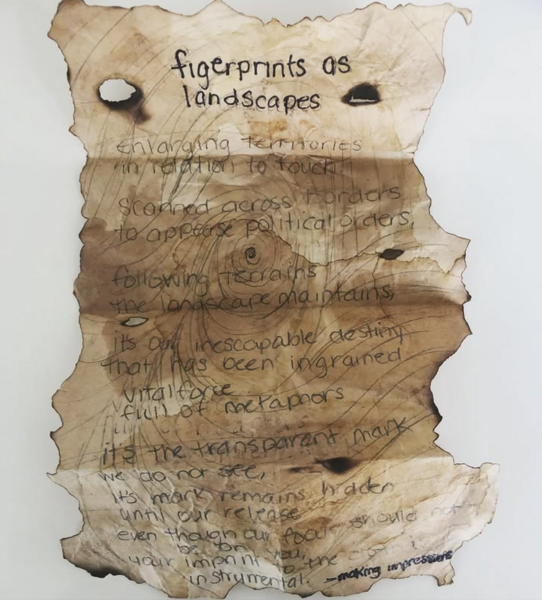 figerprints as
landscapes
enlarging territories
in relation to touch.
Scanned across borders
to appease political orders,
following terrains
the landscape maintains,
it's our inescapable destiny
that has been ingrained
vital force
full of metaphors
it's the transparent mark
we do not see,
it's mark remains hidden
until our release
even though our should not
be for you,
your imprint to the is
instrumental. -making impressions